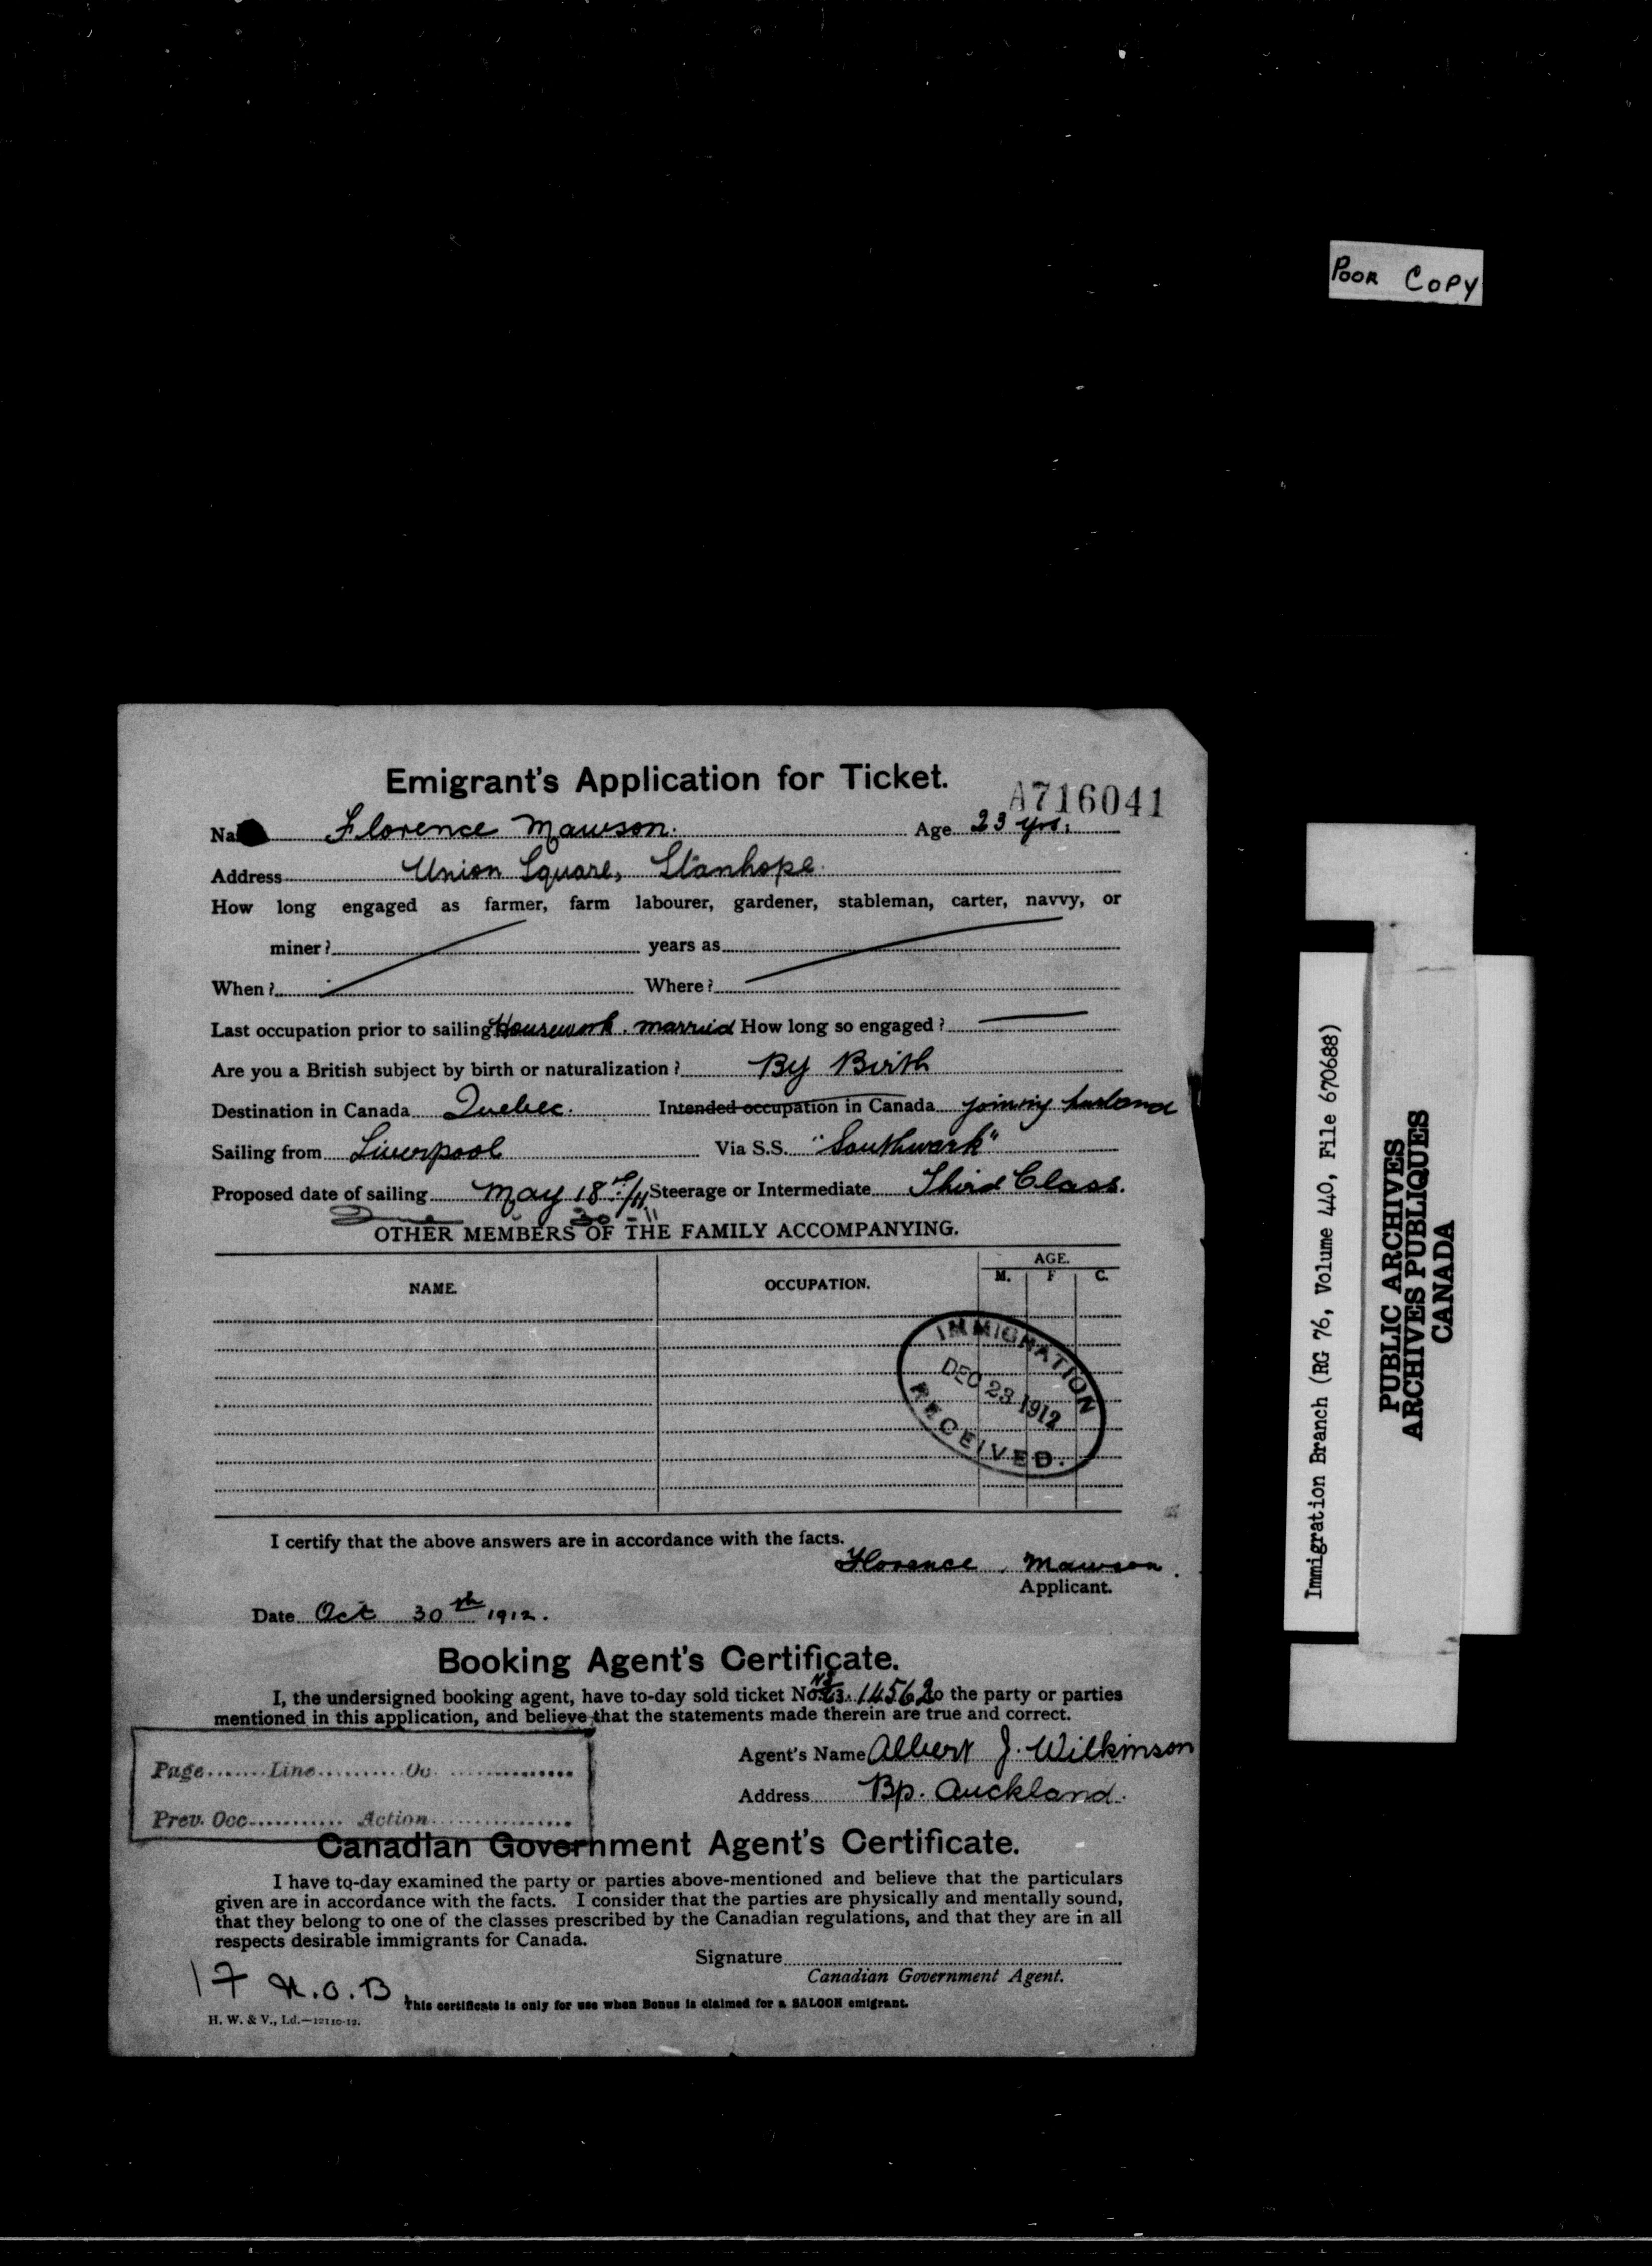 POOR COPY
Emigrant's Application for Ticket.
A716041
Na Florence Mawson. Age 23 yrs.
Address Union Square, Stanhope.
How long engaged as farmer, farm labourer, gardener, stableman, carter, navvy, or
miner? years as
When? Where?
Last occupation prior to sailing Housework. married How long so engaged?
Are you a British subject by birth or naturalization? By Birth
Destination in Canada Quebec. Intended occupation in Canada joining husband
Sailing from Liverpool Via S.S. "Southwark"
Proposed date of sailing May 18th/11 Steerage or Intermediate Third Class.
OTHER MEMBERS OF THE FAMILY ACCOMPANYING.
NAME. OCCUPATION. AGE.
M. F C.
IMMIGRATION
DEC 23 1912
RECEIVED.
I certify that the above answers are in accordance with the facts.
Florence Mawson.
Applicant.
Date Oct 30th 1912.
Booking Agent's Certificate.
I, the undersigned booking agent, have to-day sold ticket No. 14562 to the party or parties
mentioned in this application, and believe that the statements made therein are true and correct.
Agent's Name Albert J. Wilkinson
Address Bp. Auckland.
Page Line Oc.
Prev. Occ Action
Canadian Government Agent's Certificate.
I have to-day examined the party or parties above-mentioned and believe that the particulars
given are in accordance with the facts. I consider that the parties are physically and mentally sound,
that they belong to one of the classes prescribed by the Canadian regulations, and that they are in all
respects desirable immigrants for Canada.
Signature
Canadian Government Agent.
17 N.O.B
This certificate is only for use when Bonus is claimed for a SALOON emigrant.
H. W. & V., Ld.—12110-12.
Immigration Branch (RG 76, Volume 440, File 670688)
PUBLIC ARCHIVES
ARCHIVES PUBLIQUES
CANADA